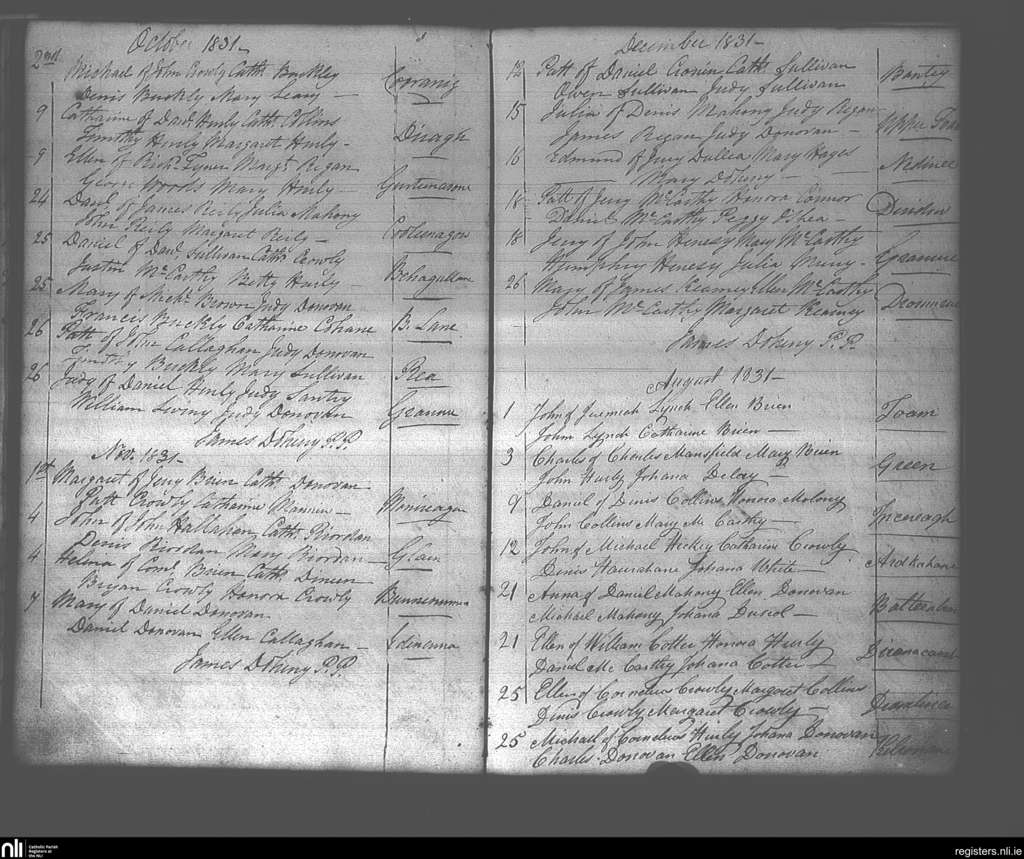 October 1831
2nd Michael of John Crowly Cath. Buckley
Denis Buckly Mary Leary
9 Catharine of Danl. Hurly Cath. Collins Diragh
Timothy Hurly Margaret Hurly
9 Ellen of Richd. Margt. Regan
George Woods Mary Hurly
24 Danl. of James Reily Julia Mahony
John Reily Margaret Reily
25 Daniel of Danl. Sullivan Cath. Crowly
Justin McCarthy Betty Hurly
25 Mary of Michl. Brown Judy Donovan B. Lane
Francis Buckly Catharine Cohane
26 Patt of John Callaghan Judy Donovan Rea
Timothy Buckly Mary Sullivan
26 Judy of Daniel Hurly Judy Santry
William Judy Donovan
James Doheny P.P.
Nov. 1831
1st Margaret of Jery Brien Cath. Donovan
Patt Crowly Catharine
4 John of John Hallahan Cath. Riordan
Denis Riordan Mary Riordan
4 of Corns. Brien Cath.
Bryan Crowly Honora Crowly
7 Mary of Daniel Donovan
Daniel Donovan Ellen Callaghan
James Doheny P.P.
December 1831
12 Patt of Daniel Cronin Cath. Sullivan Bantry
Owen Sullivan Judy Sullivan
15 Julia of Denis Mahony Judy Regan Upper
James Regan Judy Donovan
16 Edmund of Jery Dullea Mary Hayes Nedinee
Mary Doheny
18 Patt of Jerry McCarthy Honora Connor
Daniel McCarthy Peggy O'Shea
18 Jerry of John Henesy Mary McCarthy
Humphry Henesy Julia
26 Mary of James Kearney Ellen McCarthy
John McCarthy Margaret Kearney
James Doheny P.P.
August 1831
1 John of Jeremiah Lynch Ellen Brien Toam
John Lynch Catharine Brien
3 Charles of Charles Mansfield Mary Brien Green
John Hurly Johana Delay
9 Daniel of Denis Collins Honora Molony Incereagh
John Collins Mary McCarthy
12 John of Michael Hickey Catharine Crowly Ardkahane
Denis Johana White
21 Anna of Daniel Mahony Ellen Donovan
Michael Mahony Johana
21 Ellen of William Cotter Honora Hurly
Daniel McCarthy Johana Cotter
25 Ellen of Cornelius Crowly Margaret Collins
Denis Crowly Margaret Crowly
25 Michael of Cornelius Hurly Johana Donovan
Charles Donovan Ellen Donovan
nli Catholic Parish
Registers at
the NLI
registers.nli.ie